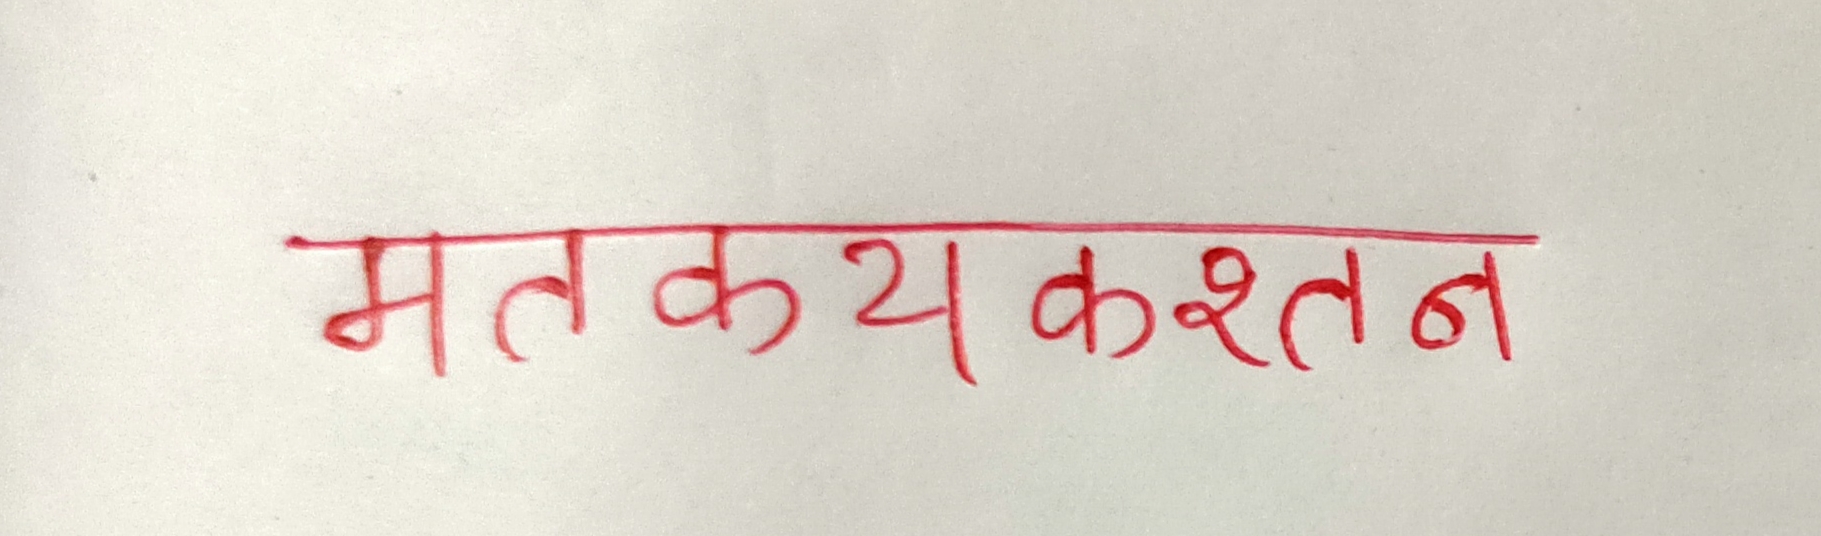 मतकयकश्तन